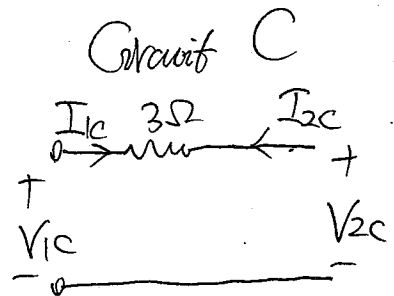 Circuit C
I1C 3Ω I2C
+ +
V1C V2C
− −